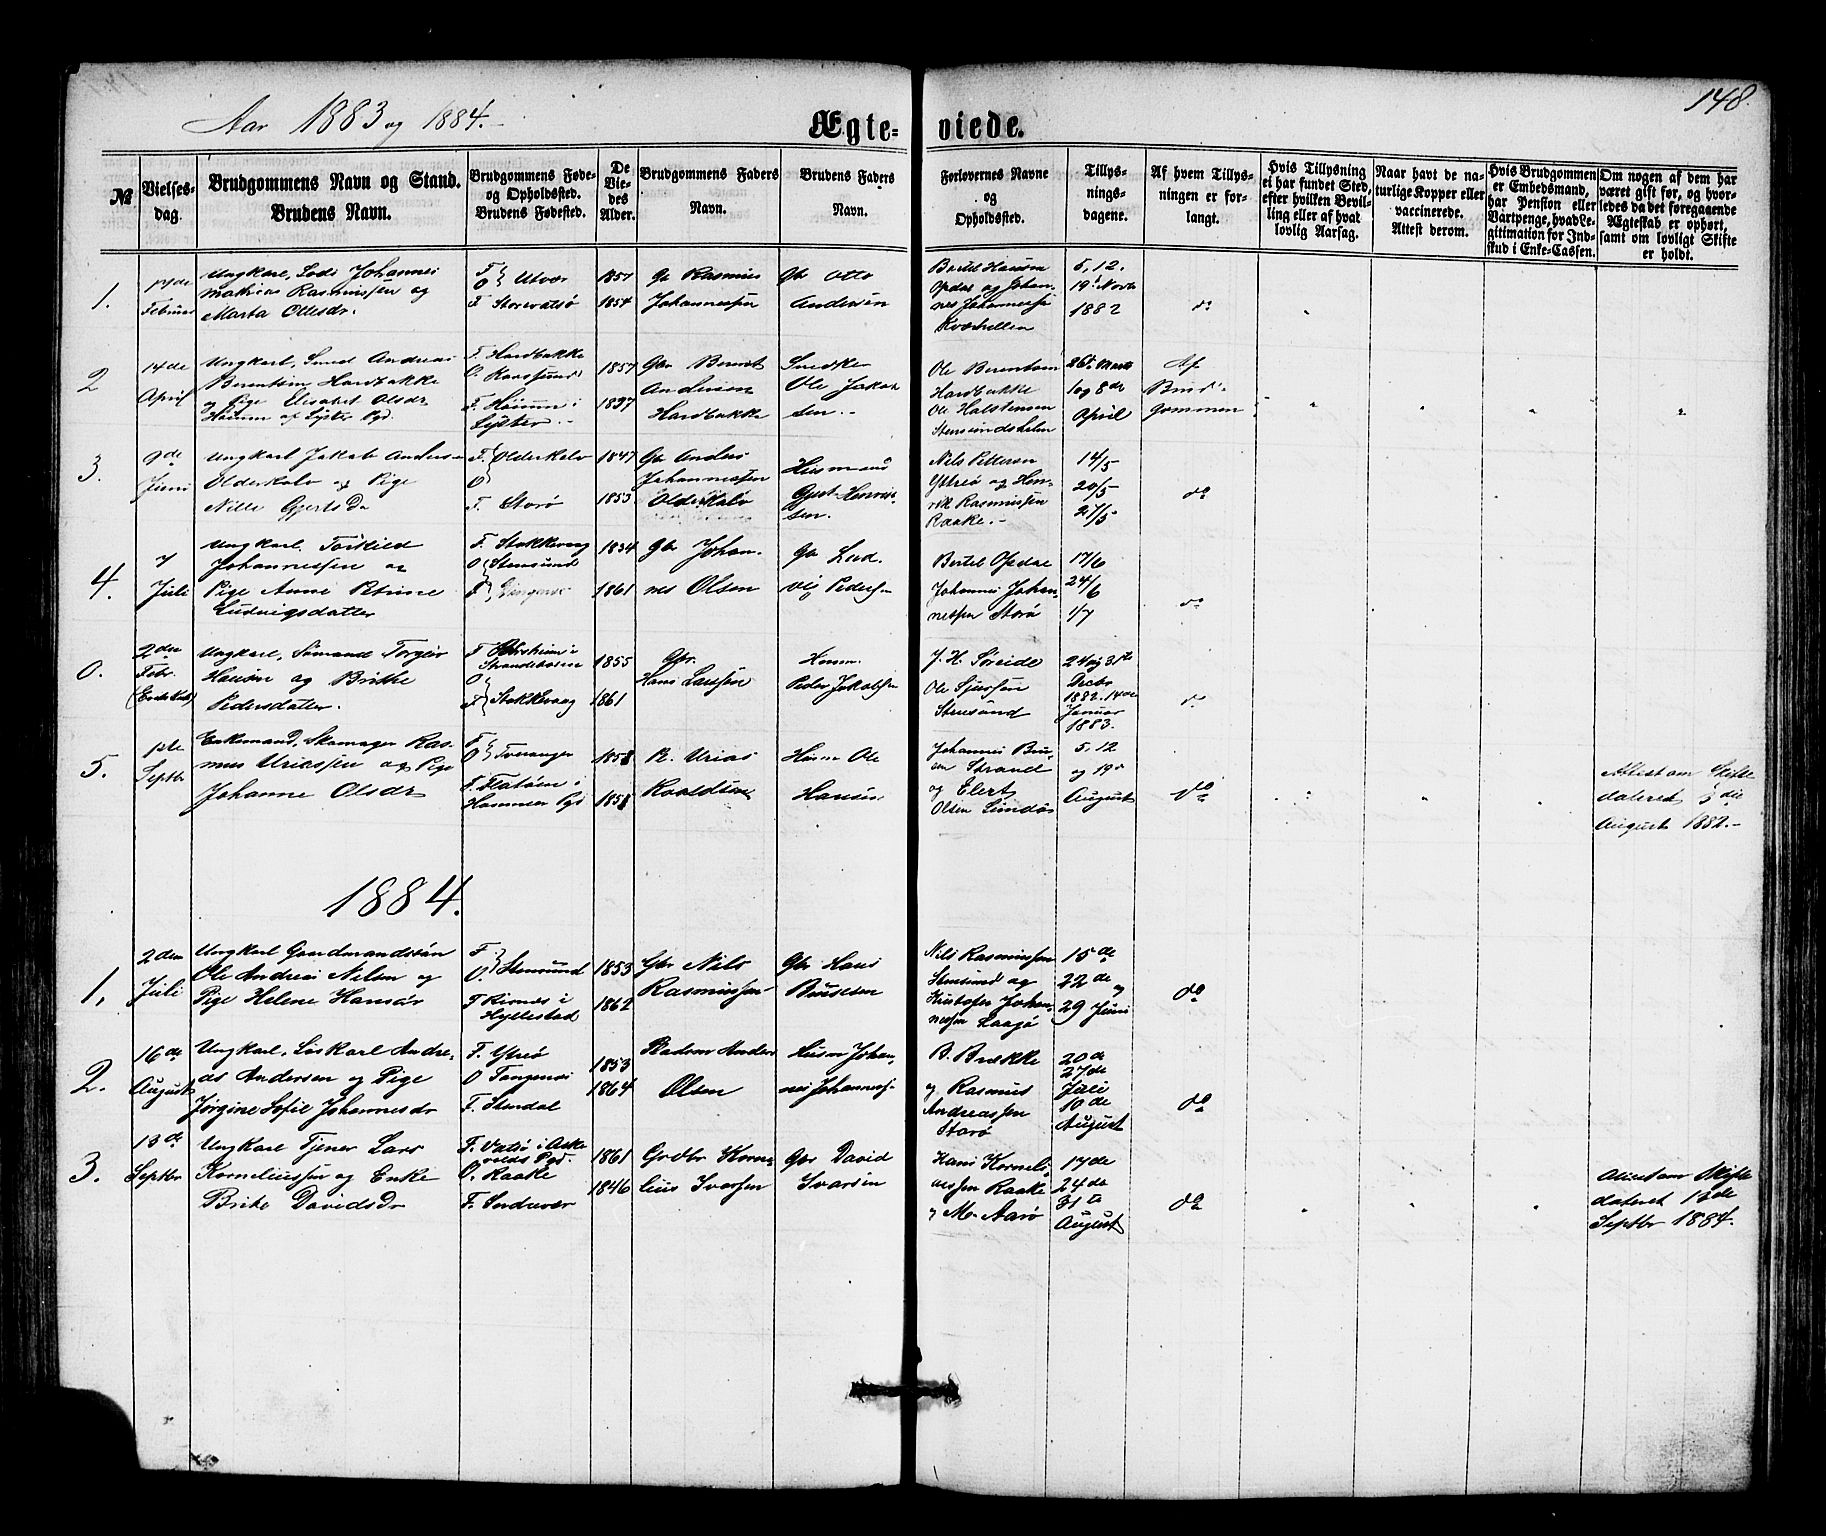 148
Aar 1883 og 1884.
Ægte-viede.
№
Vielses-dag.
Brudgommens Navn og Stand.
Brudens Navn.
Brudgommens Føde-
og Opholdssted.
Brudens Fødested.
De
Vie-
des
Alder.
Brudgommens Faders
Navn.
Brudens Faders
Navn.
Forlovernes Navne
og
Opholdssted.
Tillys-
nings-
dagene.
Af hvem Tillys-
ningen er for-
langt.
Hvis Tillysning
ei har fundet Sted,
efter hvilken Bevil-
ling eller af hvat
lovlig Aarsag.
Naar havt de na-
turlige Kopper eller
vaccinerede.
Attest derom.
Hvis Brudgommen
er Embedsmand,
har Pension eller
Vartpenge, hvad Le-
gitimation for Ind-
skud i Enke-Cassen.
Om nogen af dem har
været gift før, og hvor-
ledes da det foregaaende
Ægteskab er ophørt,
samt om lovligt Skifte
er holdt.
1.
Februar
Ungkarl, Lods Johannes
Mathias Rasmussen og
Marta Ottesdr.
F.
O } Utvær
F.
1857
1854
Gbr Rasmus
Johannessen
Gbr Otto
Andersen
Bertel Hansen
Opdal og Johan-
nes Johannessen
5, 12.
19 Novb
1882
do
2
14de
April
Ungkarl, Andreas
Berentsen Hardbakke
og Pige Elisabet Olsdr
Heium af Lyster Pgd.
F. Hardbakke
O.
F. Heium i
Lyster.
1857
1837
Gbr Berent
Andersen
Hardbakke
Ole Jakob
sen.
Ole Berentsen
Hardbakke
Ole Halstensen
Stensundsholm
26t Marts
1 og 8de
April
Af
Brud-
gommen
3.
Juni
Ungkarl Jakob Anders-
Olderkalv og Pige
Nille Gjertsdr
F. } Olderkalv
O
F. Storø
1847
1853
Gbr Anders
Johannessen
Olderkalv
Husmand
Gjert Henrik
sen.
Nils Pettersen
Ytreø og Hen-
rik Rasmussen
Raake.
14/5
20/5
27/5
do
4.
7
Juli
Ungkarl, Torkild
Johannessen og
Pige Anne Petrine
Ludvigsdatter
F. Stokkevaag
O } Stensund
F.
1834
1861
Gbr Johan-
nes Olsen
Gbr Lud-
vig Pedersen
Bertel Opdal
Johannes Johan-
nessen Storø
17/6
24/6
1/7
do
0.
2den
Febr.
Ungkarl, Sømand Torgeir
Hansen og Brithe
Pedersdatter.
F.
Strandebarm
O
F. } Stokkevaag
1855
1861
Gbr.
Hans Larssen
Husm.
Peder Jakobsen
J. H. Søreide
Ole Sjursen
Stensund
24 og 31te
Decbr
1882. 14de
Januar
1883.
do
5.
1ste
Septbr
Enkemand, Skomager Ras-
mus Uriassen og Pige
Johanne Olsdr
F.
O } Tveranger
F. Flatøen i
Hammer Pgd
1858
1858
R. Urias
Roaldsen
Husm Ole
Hansen
Johannes Bru-
un Strand
og Elert
Olsen Sundøs
5, 12
og 19.
August
do
Attest om Skifte
dateret 3die
August 1882.
1884.
1.
2den
Juli
Ungkarl Gaardmandssøn
Ole Andreas Nilsen og
Pige Helene Hansdr
F.
O. } Stensund
F. Risnes i
Hyllestad
1853
1862
Gbr Nils
Rasmussen
Gbr Hans
Nils Rasmussen
Stensund og
Kristofer Johan-
nessen Laagø
15de
22de og
29 Juni
do
2.
16de
August
Ungkarl, Løskarl Andre-
as Andersen og Pige
Jørgine Sofie Johannesdr
F. Ytreø
O. Tangenes
F. Stendal
1853
1864
Anders
Olsen
Husm Johan-
nes Johannes-
B. Brække
og Rasmus
Andreassen
Storø
20de
27de
Juli
10de
August
do
3.
13de
Septbr
Ungkarl Tjener Lars
Korneliussen og Enke
Brite Davidsdr
F. Vatsø i Aske
volds Pgd.
O. Raake
F. Sordrevær
1861
1846
Gbr Korne-
lius Ivarsen
Gbr David
Ivarsen
Hans Korneli-
ussen Raake
og M. Aarø
17de
24de
31te
August
do
Attest om Skifte
dateret 13de
Septbr 1884.